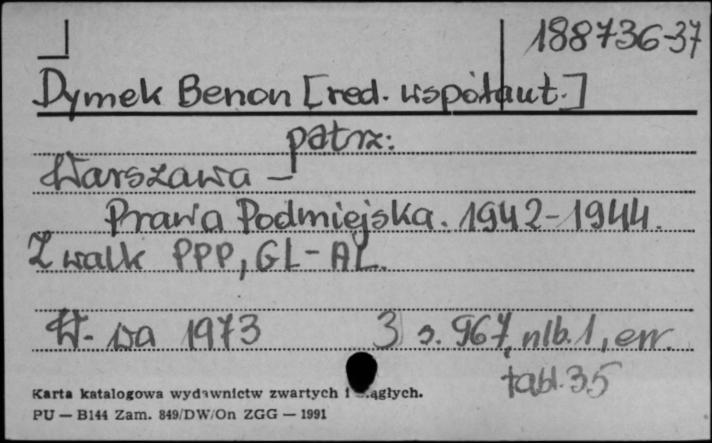 188736-37
Dymek Benon [red. współaut.]
patrz:
Warszawa –
Prawa Podmiejska. 1942-1944.
Z walk PPP, GL-AL.
W-wa 1973 3 s. 967, nlb. 1, err.
tabl. 35
Karta katalogowa wydawnictw zwartych i ciągłych.
PU — B144 Zam. 849/DW/On ZGG — 1991